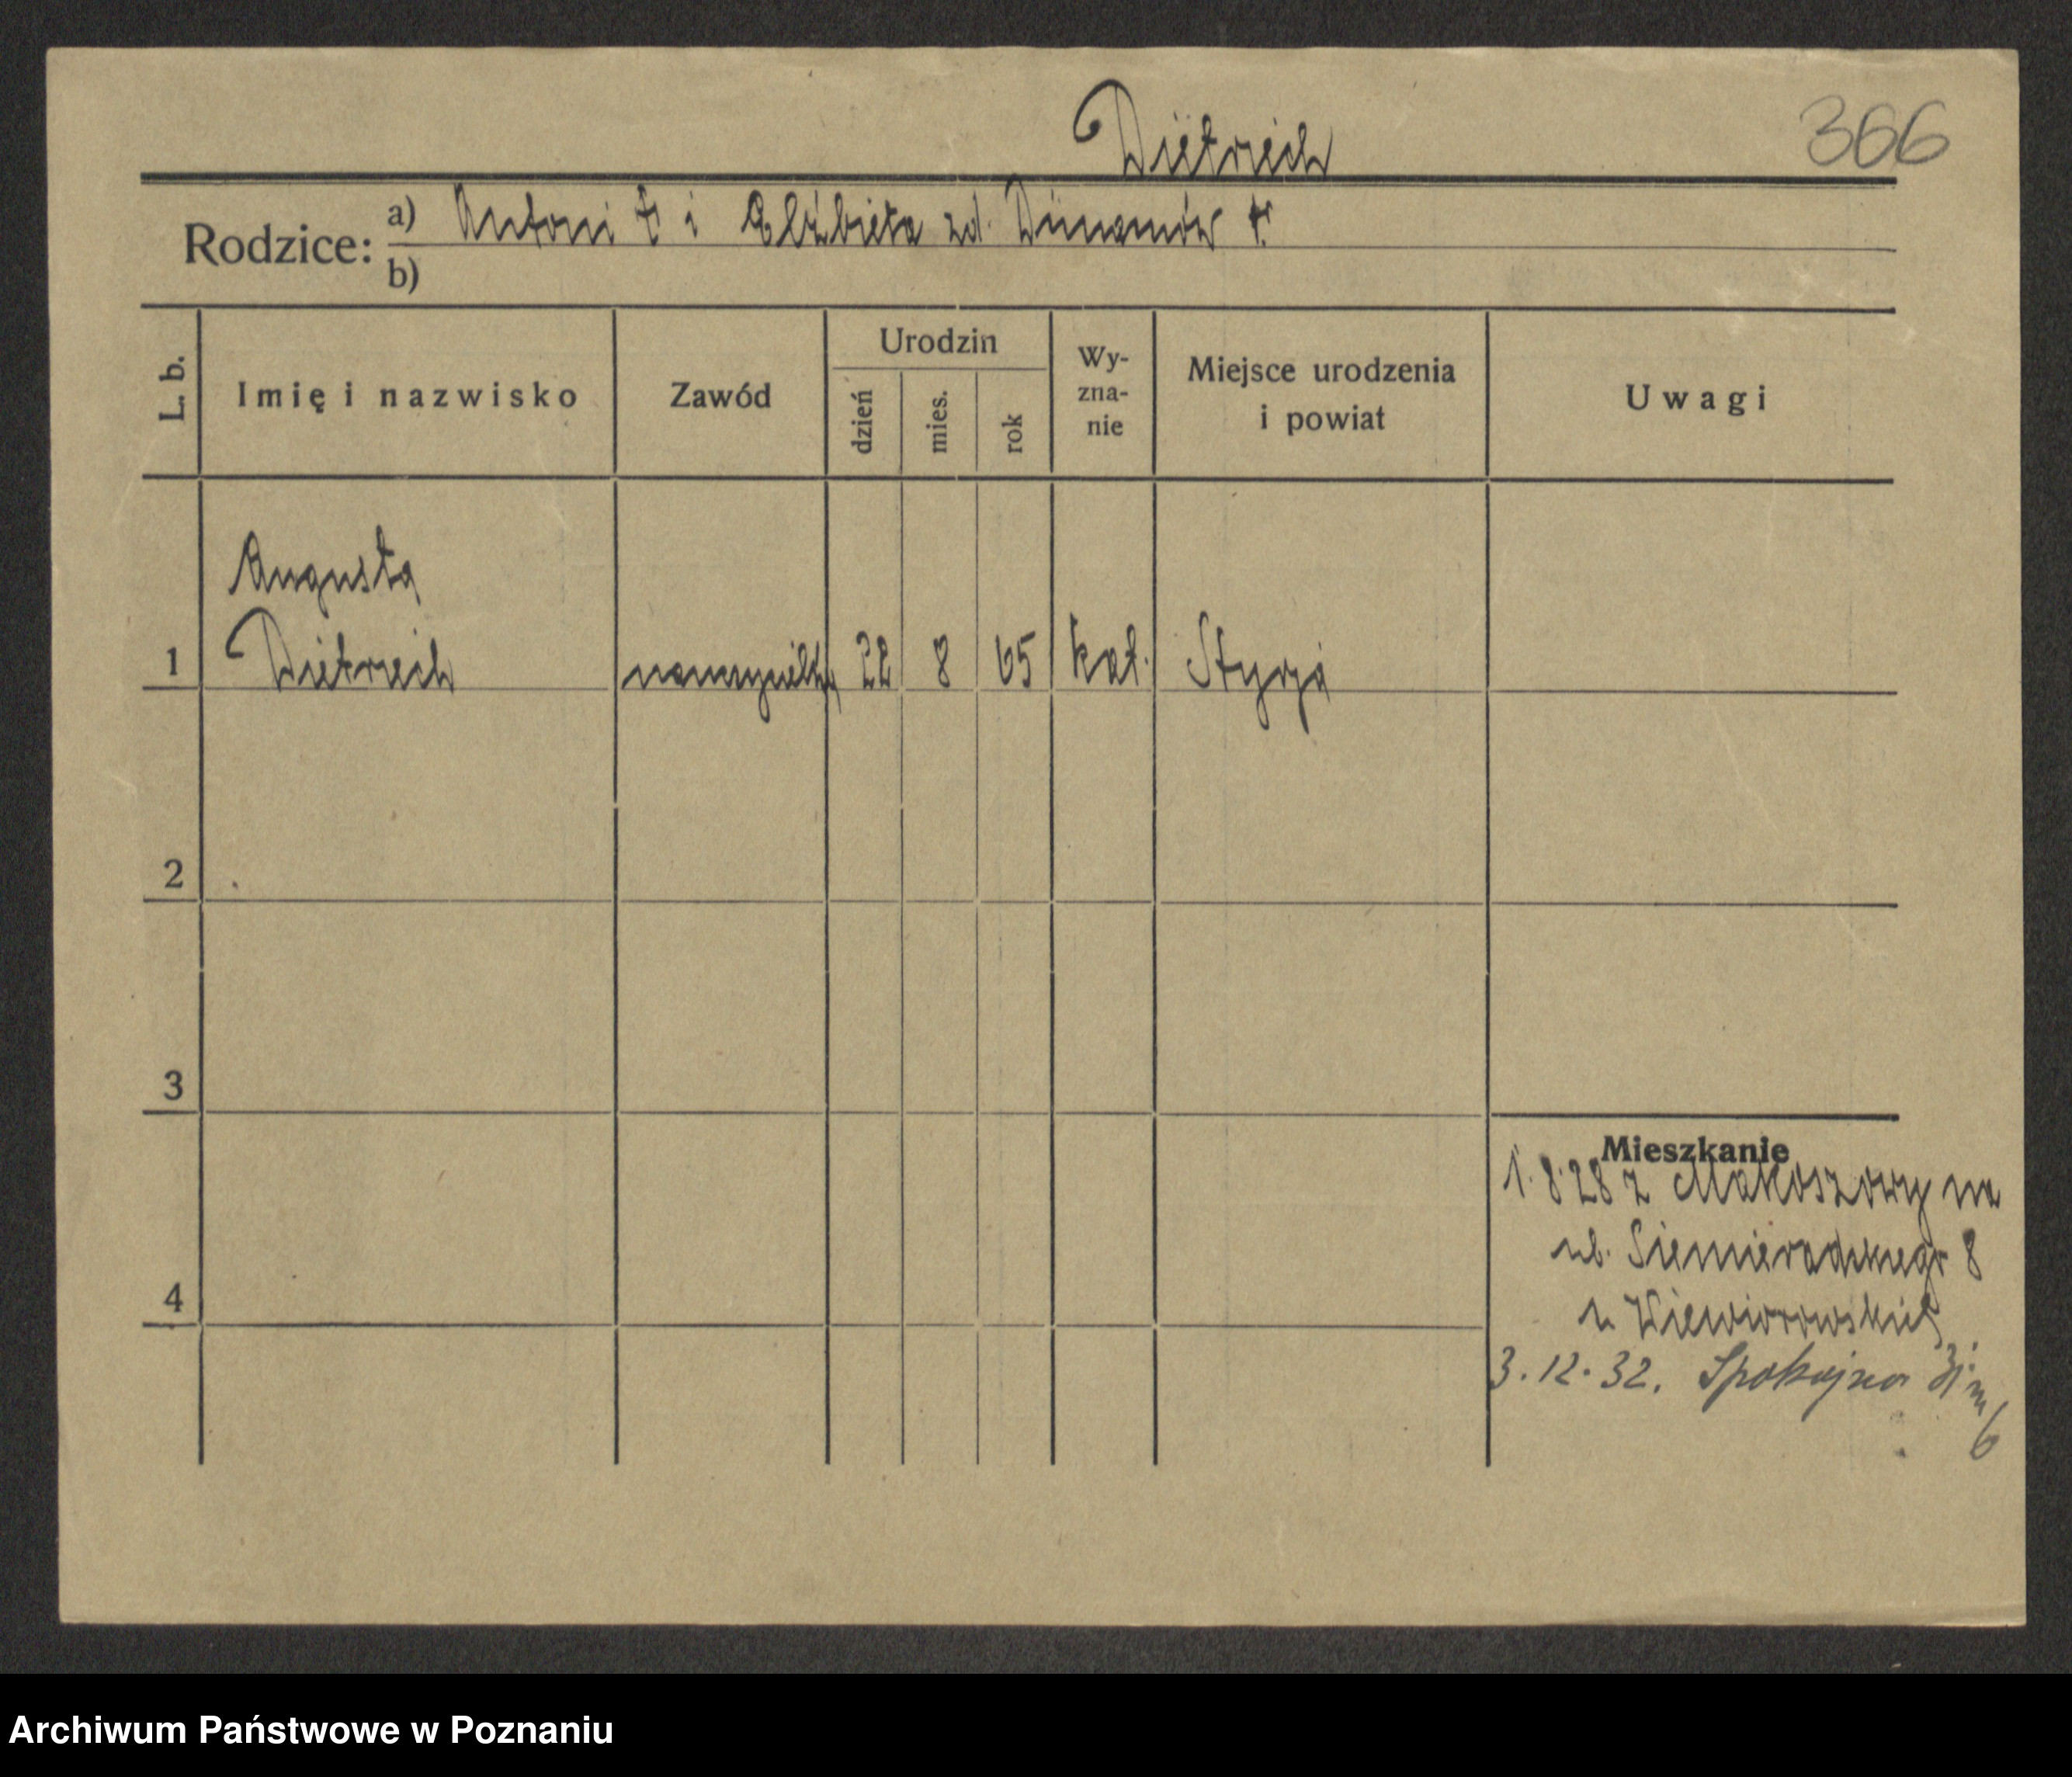 Dietrich
366
Rodzice: a) Antoni † i Elżbieta zd. †
b)
L. b.
Imię i nazwisko
Zawód
Urodzin
dzień
mies.
rok
Wy-
zna-
nie
Miejsce urodzenia
i powiat
Uwagi
Augusta
1 Dietrich nauczycielka 22 8 65 kat. Styrja
2
3
4
Mieszkanie
1.8.28 z Makoszowy na
ul. Siemieradzkiego 8
u Wiewiorowskiej
3.12.32. Spokojna m
6
Archiwum Państwowe w Poznaniu